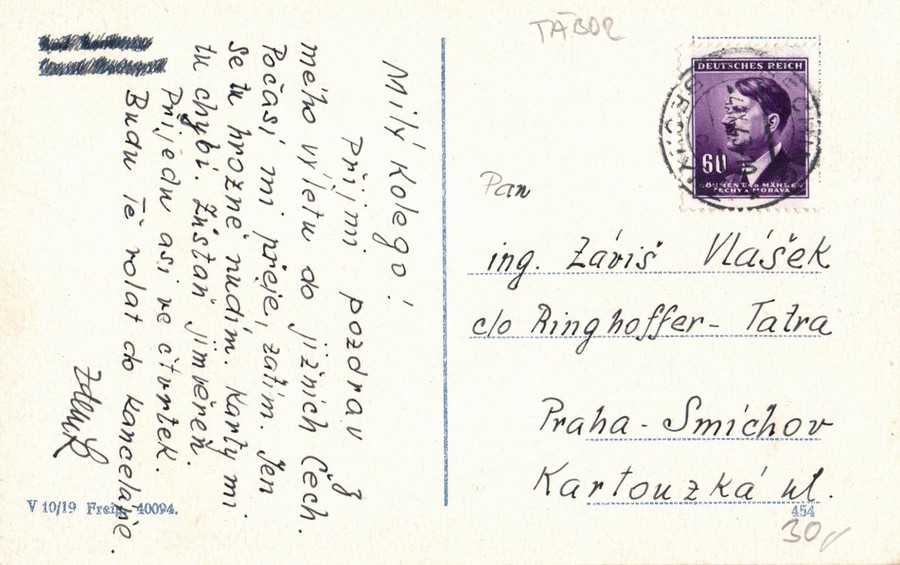 TÁBOR
Milý kolego!
Přijmi pozdrav z
mého výletu do jižních Čech.
Počasí mi přeje, zatím. Jen
se tu hrozně nudím. Karty mi
tu chybí. Zůstaň jim věren.
Přijedu asi ve čtvrtek.
Budu Tě volat do kanceláře.
Zdeněk
V 10/19 40094.
DEUTSCHES REICH
60
BÖHMEN UND MÄHREN
ČECHY A MORAVA
Pan
ing. Záviš Vlášek
c/o Ringhoffer-Tatra
Praha-Smíchov
Kartouzká ul.
454
30